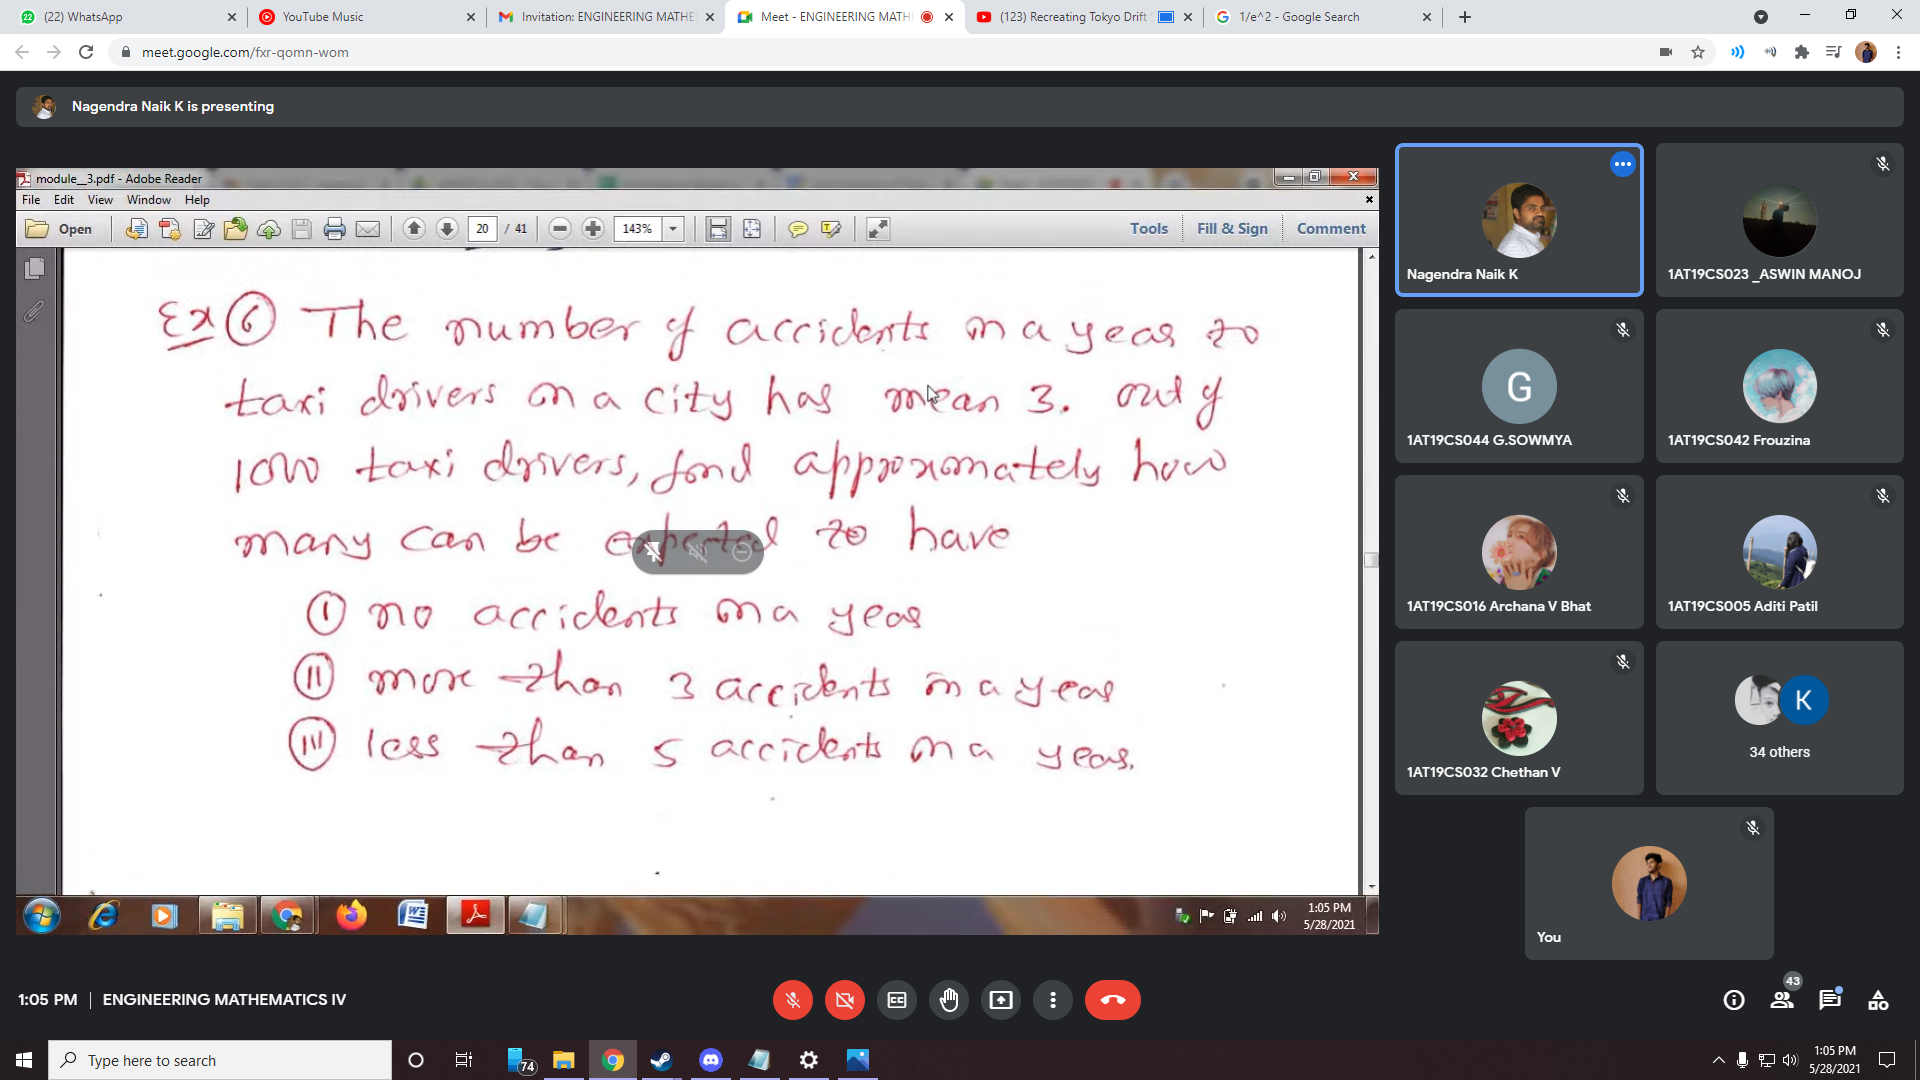 (22) WhatsApp
YouTube Music
Invitation: ENGINEERING MATHE
Meet - ENGINEERING MATH
(123) Recreating Tokyo Drift
1/e^2 - Google Search
meet.google.com/fxr-qomn-wom
Nagendra Naik K is presenting
module_3.pdf - Adobe Reader
File Edit View Window Help
Open
20 / 41
143%
Tools
Fill & Sign
Comment
Ex 6 The number of accidents in a year to
taxi drivers in a city has mean 3. out of
1000 taxi drivers, find approximately how
many can be expected to have
I no accidents in a year
II more than 3 accidents in a year
III less than 5 accidents in a year.
1:05 PM
5/28/2021
Nagendra Naik K
1AT19CS023 _ASWIN MANOJ
G
1AT19CS044 G.SOWMYA
1AT19CS042 Frouzina
1AT19CS016 Archana V Bhat
1AT19CS005 Aditi Patil
1AT19CS032 Chethan V
K
34 others
You
1:05 PM | ENGINEERING MATHEMATICS IV
43
Type here to search
74
1:05 PM
5/28/2021